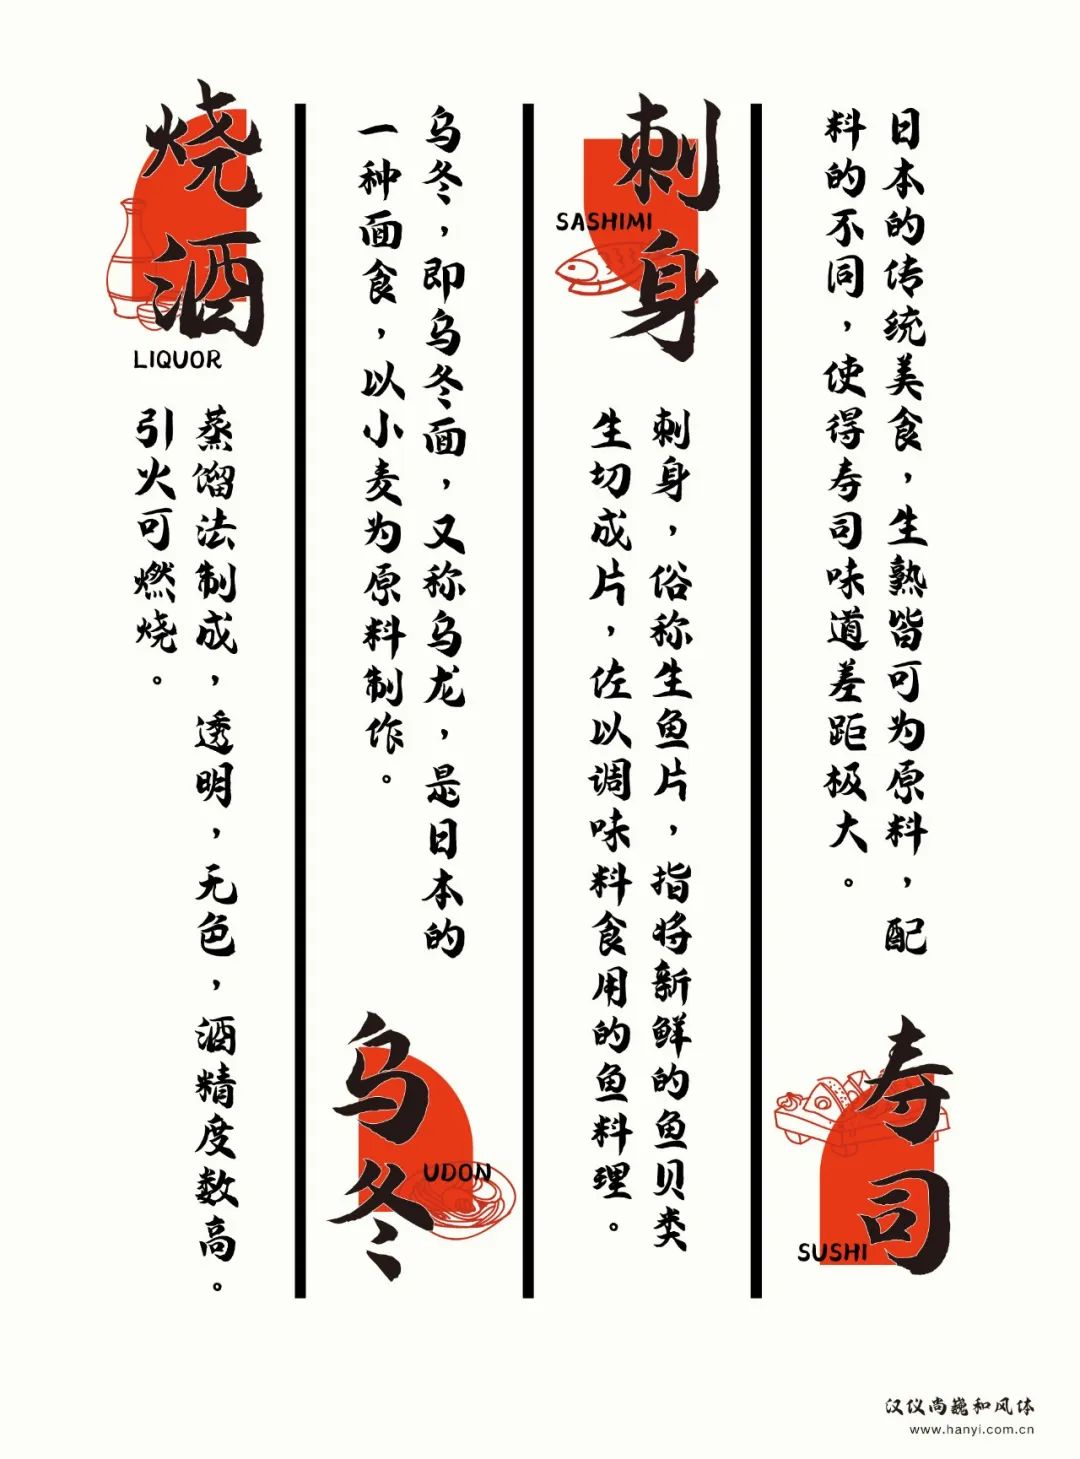 日本的传统美食，生熟皆可为原料，配
料的不同，使得寿司味道差距极大。
寿司
SUSHI
刺身
SASHIMI
刺身，俗称生鱼片，指将新鲜的鱼贝类
生切成片，佐以调味料食用的鱼料理。
乌冬，即乌冬面，又称乌龙，是日本的
一种面食，以小麦为原料制作。
乌冬
UDON
烧酒
LIQUOR
蒸馏法制成，透明，无色，酒精度数高。
引火可燃烧。
汉仪尚巍和风体
www.hanyi.com.cn